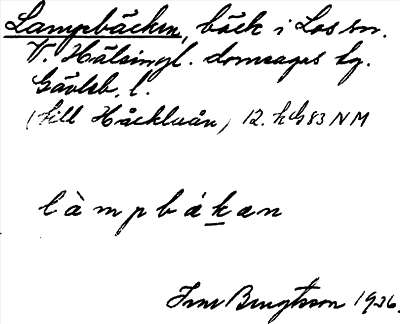 Lampbäcken, bäck i Los sn.
V. Hälsingl. domsagas tg.
Gävleb. l.
(till Håckluån) 12. h G 83 NM
làmpbákan
Bengtsson 1926.